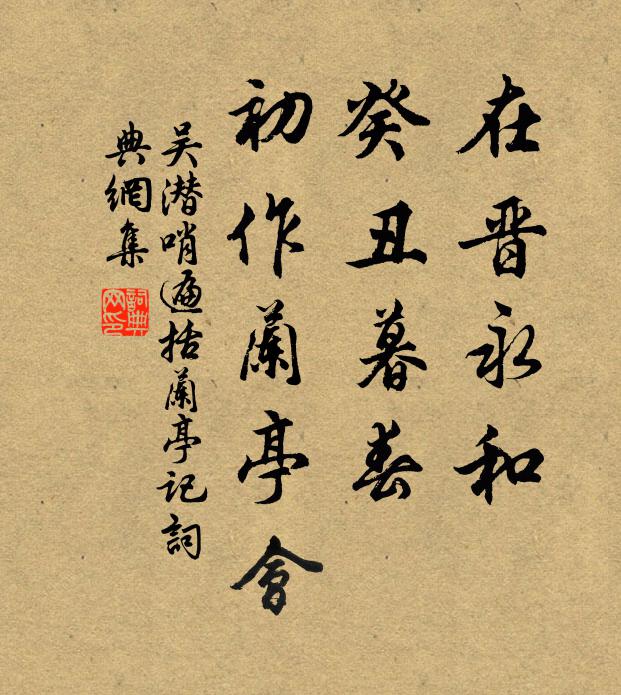 在晋永和
癸丑暮春
初作蘭亭會
吴潜哨遍括蘭亭记詞
典網集
詞典
网印